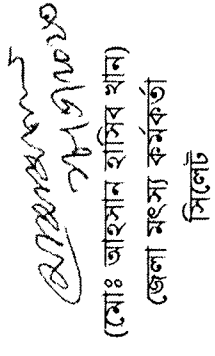 (মোঃ আহসান হাসিব খান)
জেলা মৎস্য কর্মকর্তা
সিলেট